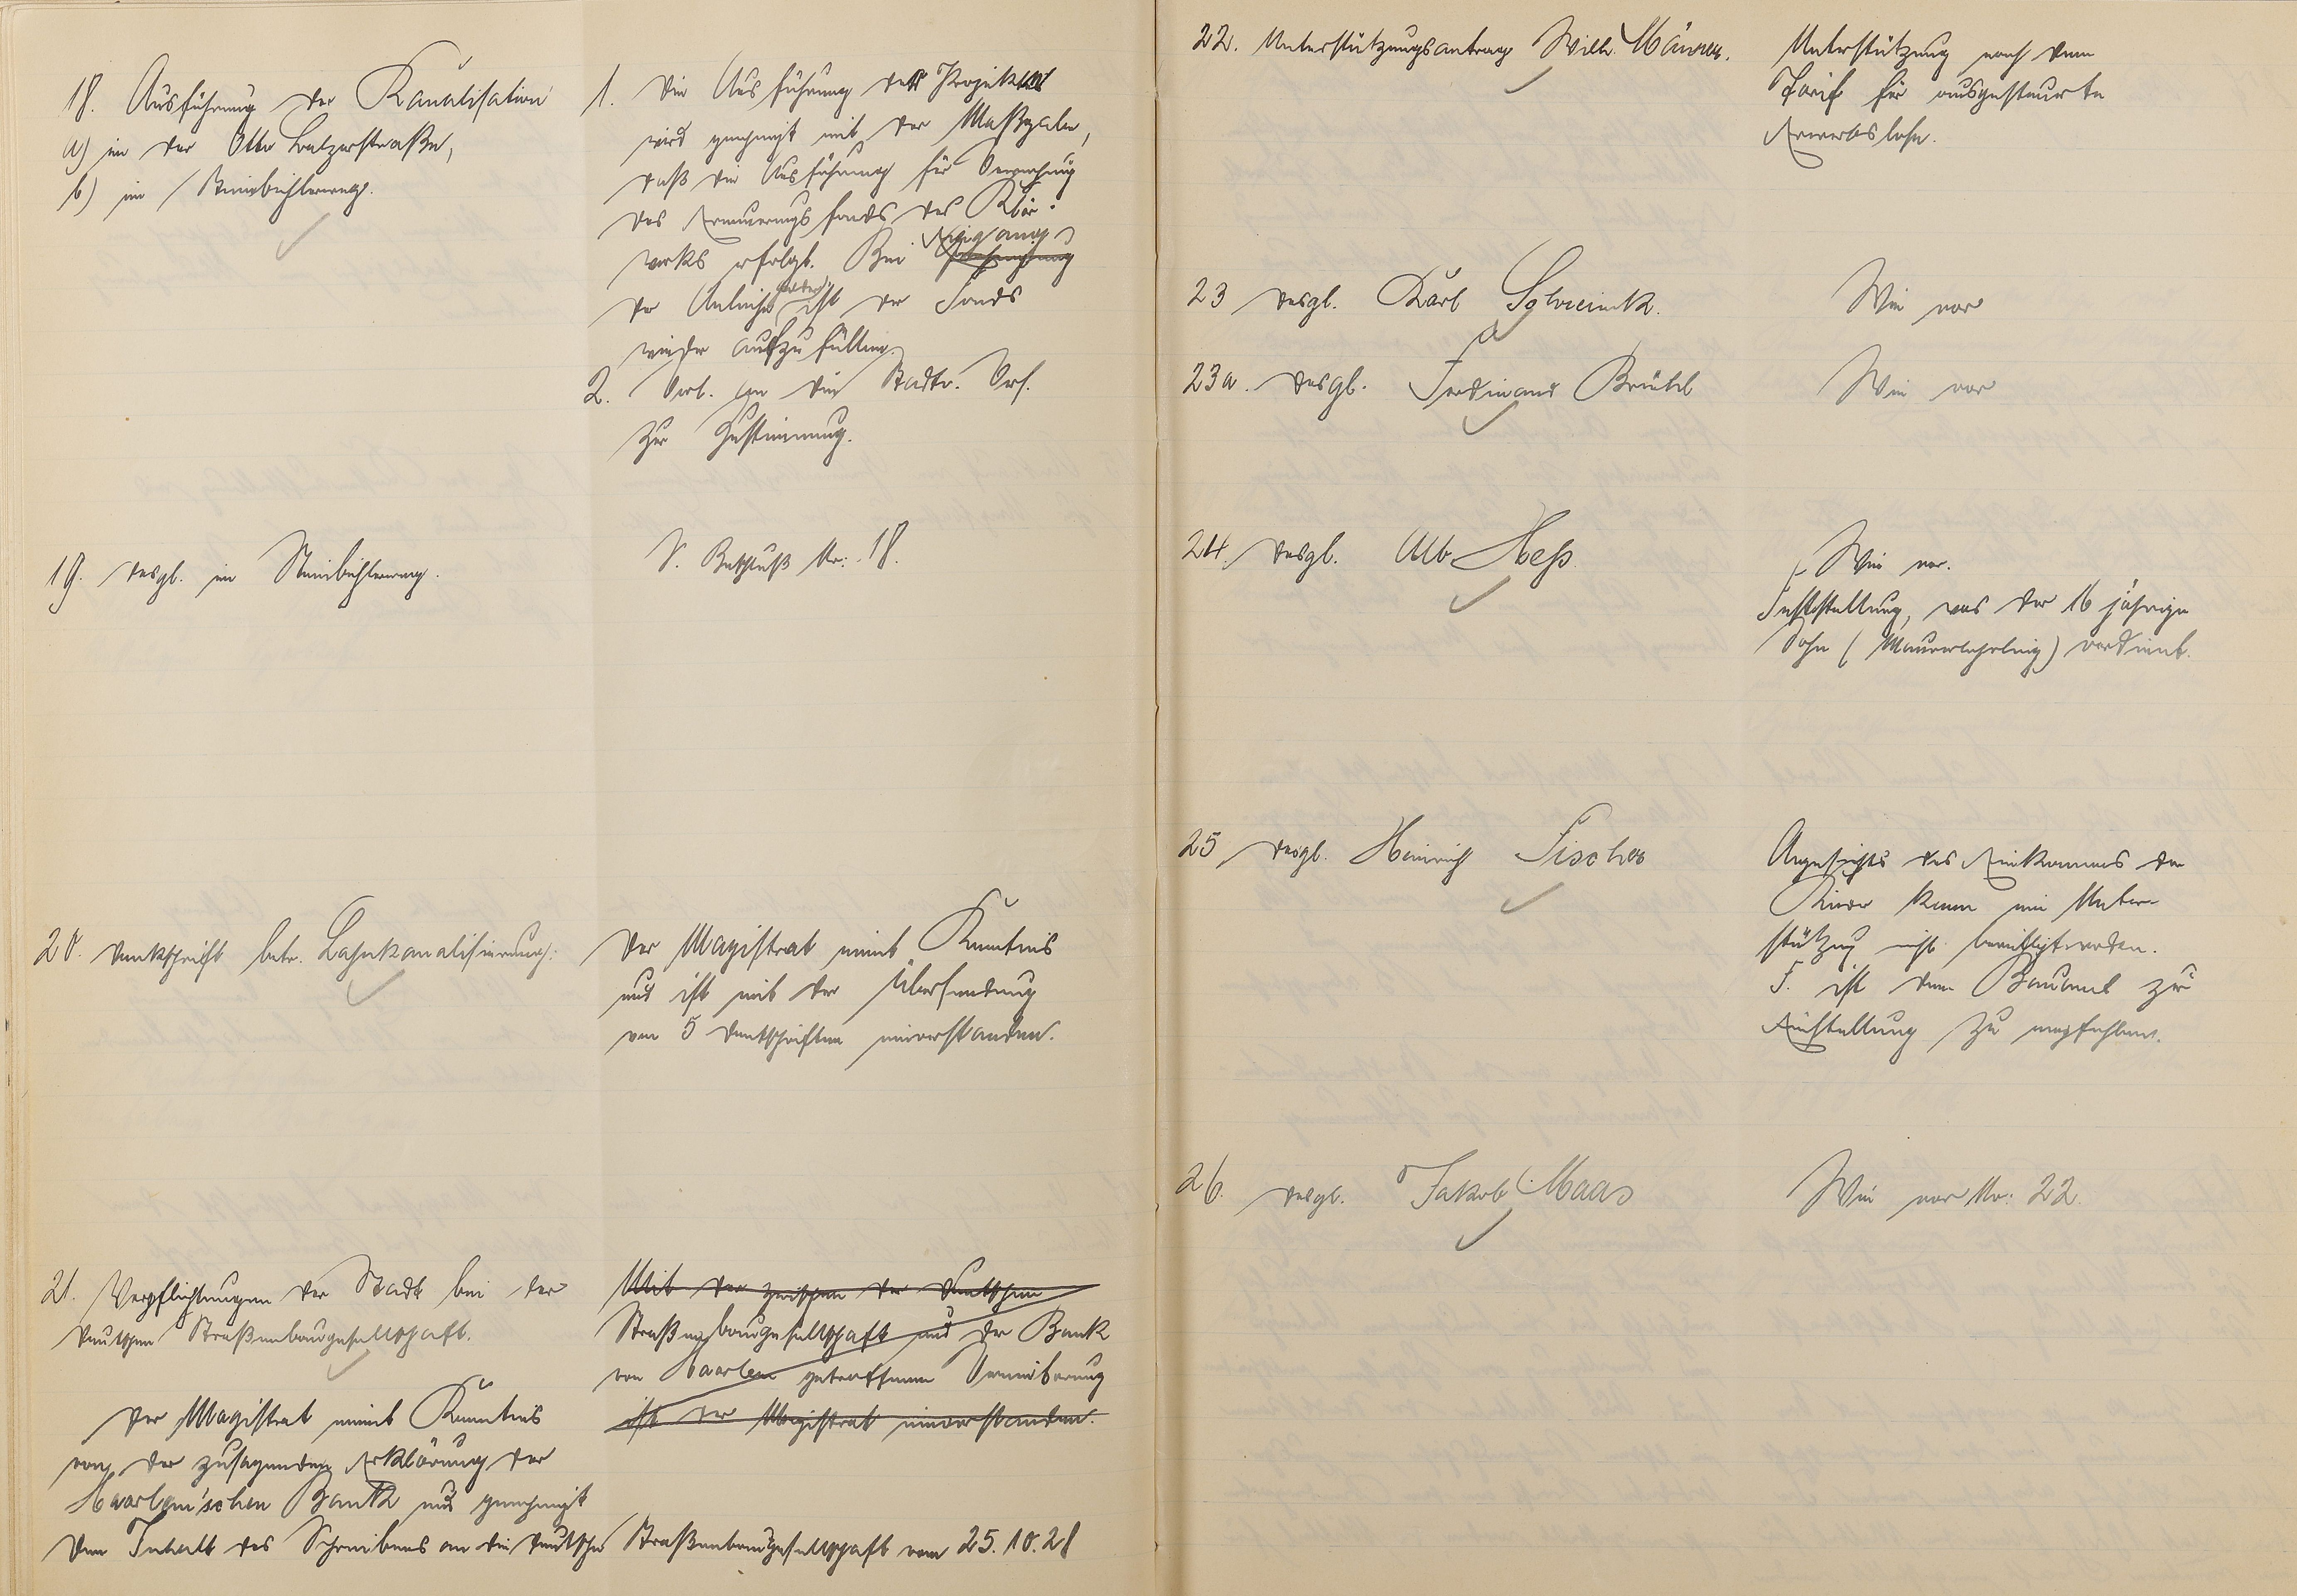 18. Ausführung der Kanalisation
a) in der Otto Balzerstraße,
b) im Steinbühlerweg.
1. Die Ausführung des Projektes
wird genehmigt mit der Maßgabe,
daß die Ausführung für Rechnung
des Erneuerungsfonds des Klär-
werks erfolgt. Bei Eingang
der Anleihe ist der Fonds
wieder aufzufüllen.
2. Vorl. an die Stadtv. Vers.
zur Zustimmung.
19. desgl. im Steinbühlerweg.
S. Beschluß Nr: 18.
20. Denkschrift betr. Lahnkanalisierung.
Der Magistrat nimmt Kenntnis
und ist mit der Übersendung
von 5 Denkschriften einverstanden.
21. Verpflichtungen der Stadt bei der
Deutschen Straßenbaugesellschaft.
Mit der zwischen der Deutschen
Straßenbaugesellschaft und der Bank
von Haarlem getroffenen Vereinbarung
ist der Magistrat einverstanden.
Der Magistrat nimmt Kenntnis
von der zusagenden Erklärung der
Haarlem'schen Bank und genehmigt
den Inhalt des Schreibens an die Deutsche Straßenbaugesellschaft vom 25.10.28
22. Unterstützungsantrag Wilh.
Unterstützung nach dem
Tarif für ausgesteuerte
Erwerbslose.
23 desgl. Karl
Wie vor
23a. desgl. Ferdinand Brückel
Wie vor
24. desgl. Alb. Heß.
Wie vor.
Feststellung, was der 16 jährige
Sohn (Maurerlehrling) verdient.
25 desgl. Heinrich Fischer
Angesichts des Einkommens der
Kinder kann eine Unter-
stützung nicht bewilligt werden.
F. ist dem Bauamt zur
Einstellung zu empfehlen.
26. desgl. Jakob Maas
Wie vor Nr: 22.